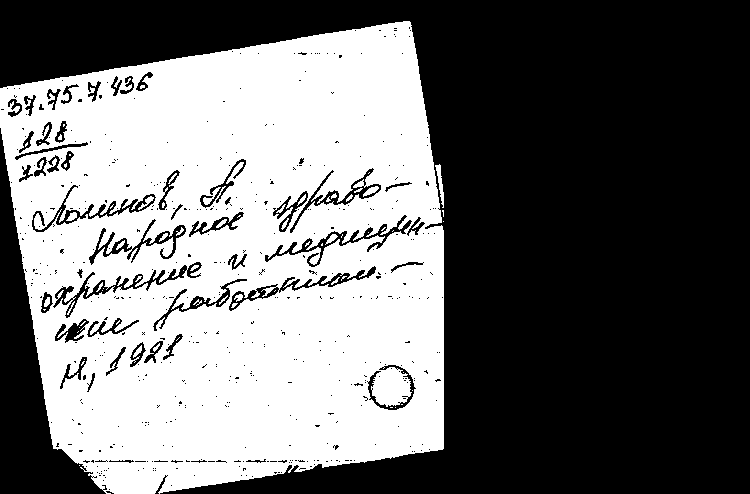 37.75.7.436
128
1228
Логинов, А.
Народное здраво-
охранение и медицин-
ские работники. -
М., 1921